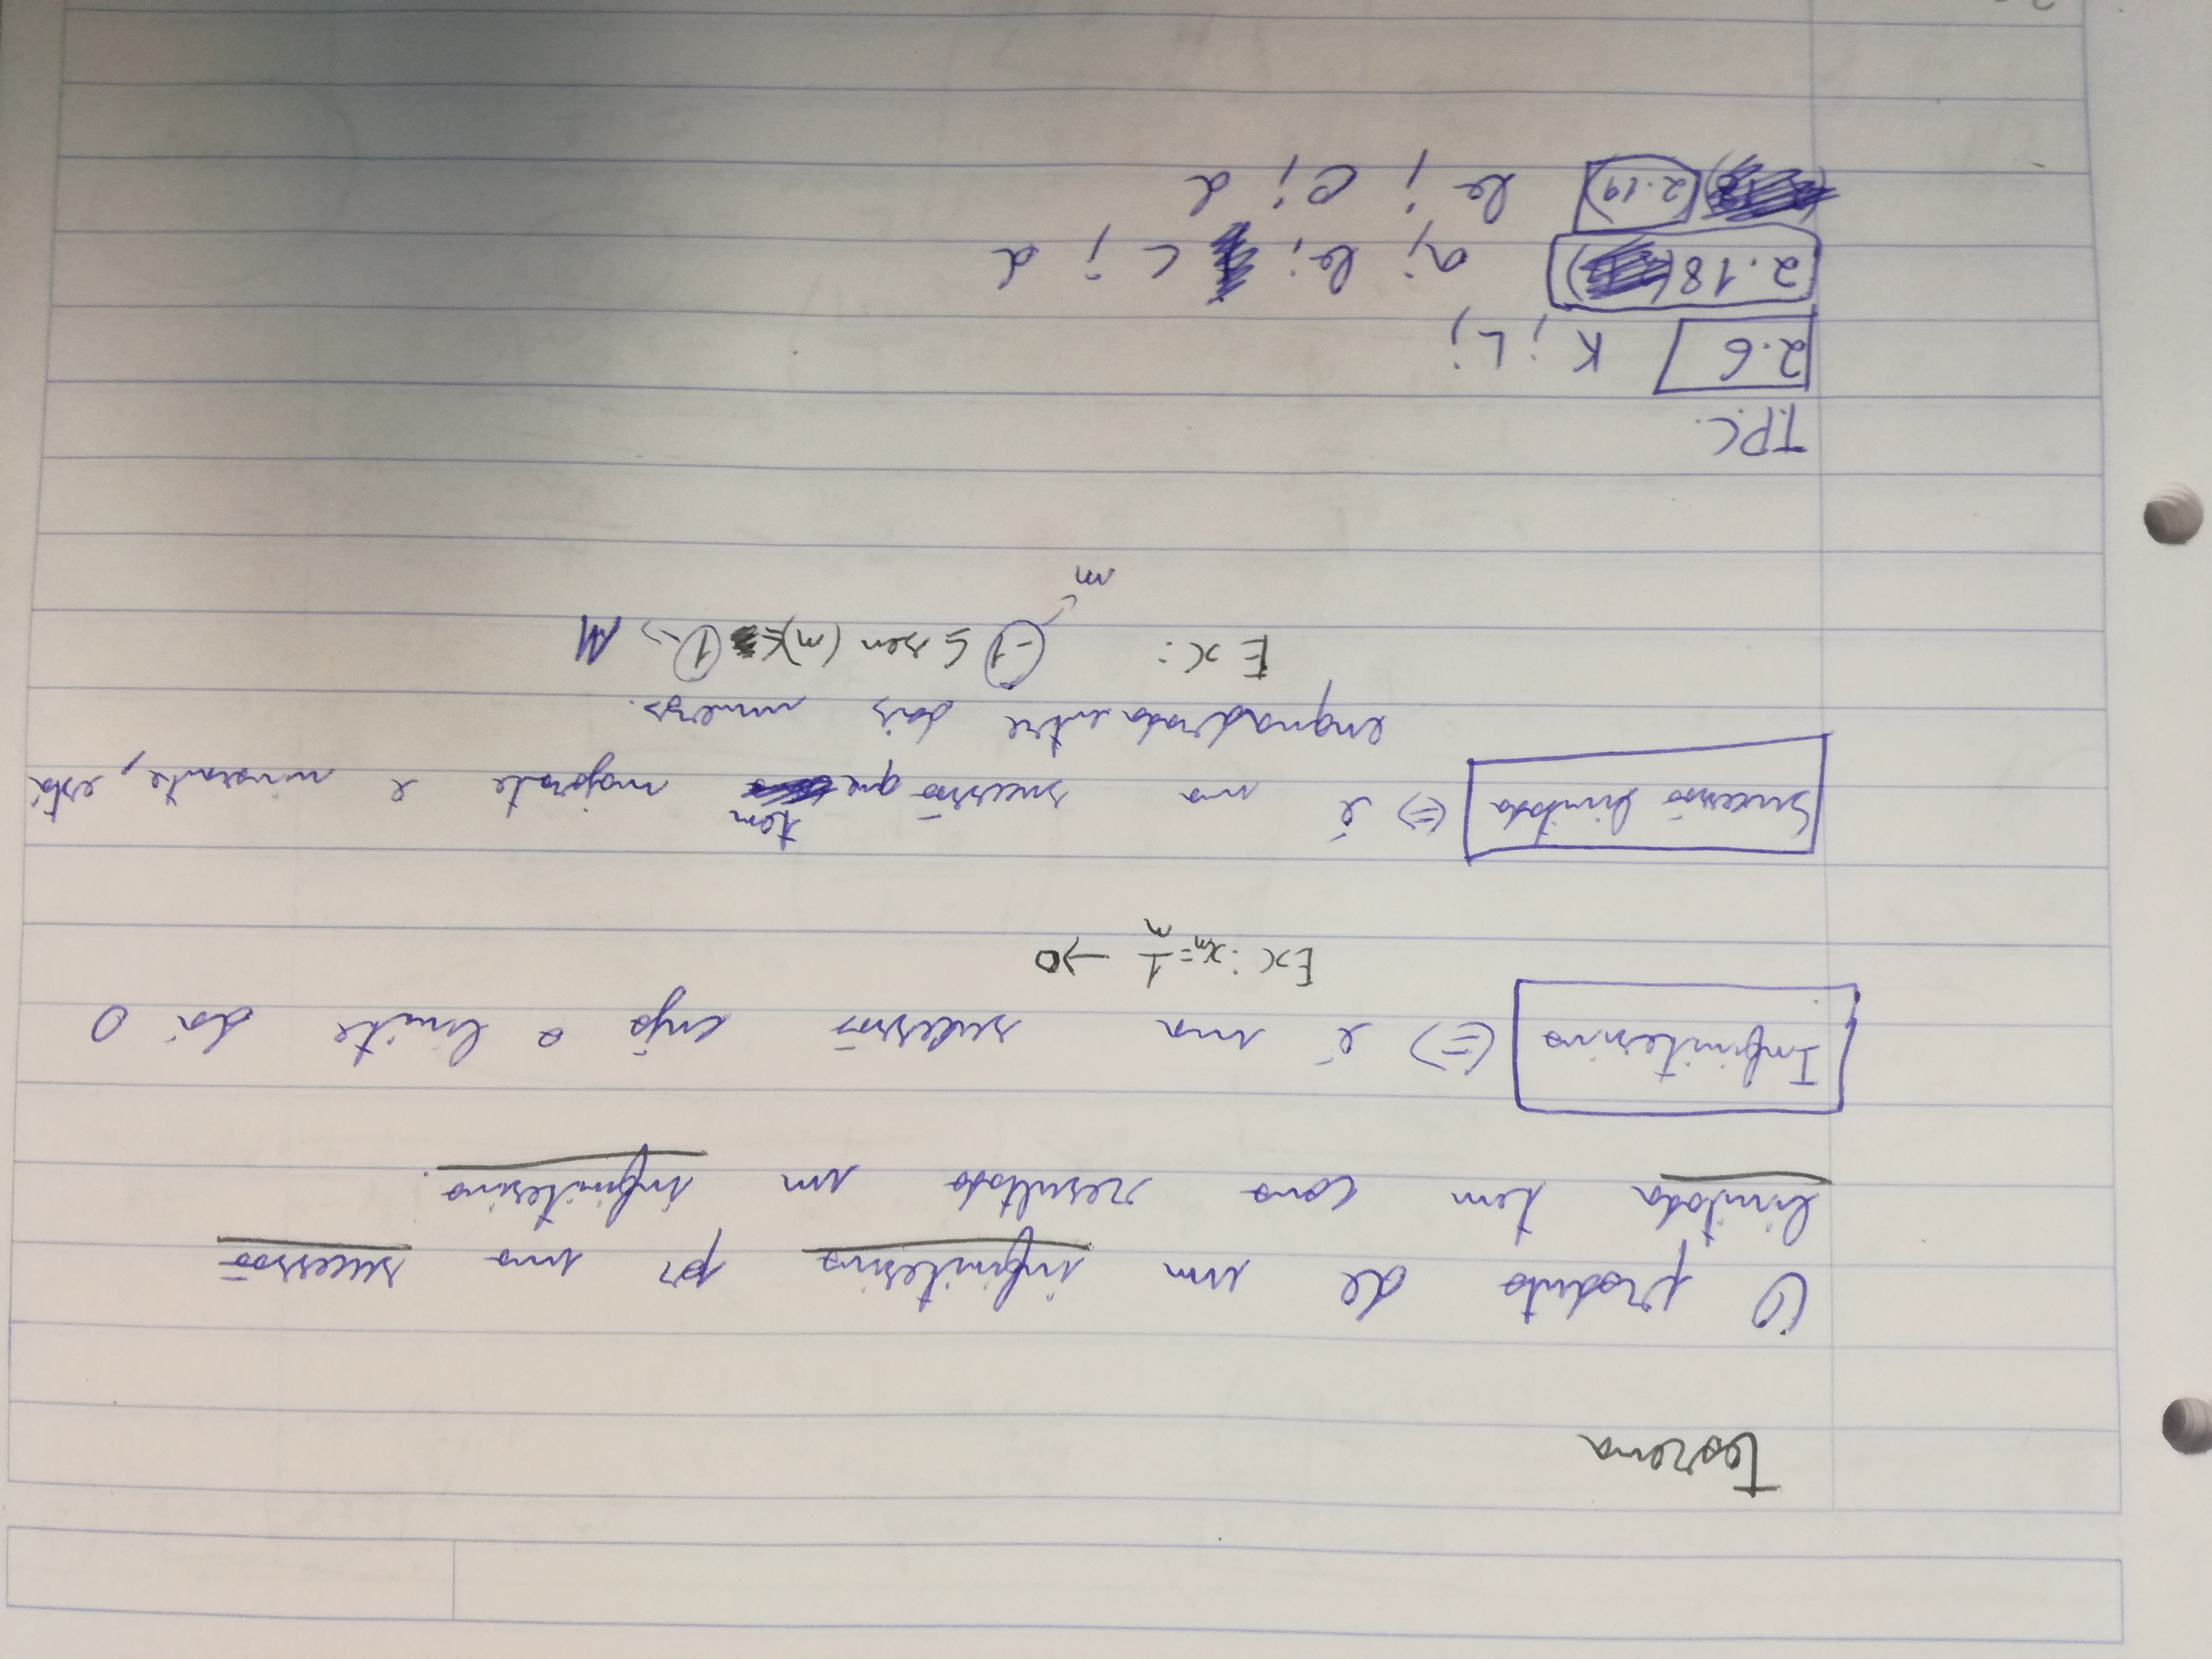 Teorema
O produto de um infinitesimo por uma sucessão
limitada tem como resultado um infinitesimo.
Infinitesimo (=) é uma sucessão cuja o limite dá 0
Ex: xn = 1/n → 0
Sucessão limitada (=) é uma sucessão que tem majorante e minorante, está
enquadrada entre dois numeros.
Ex: -1 ≤ sen(n) ≤ 1 → M
m
T.P.C.
2.6 K; L;
2.18 a; b; c; d
(2.19) b; c; d